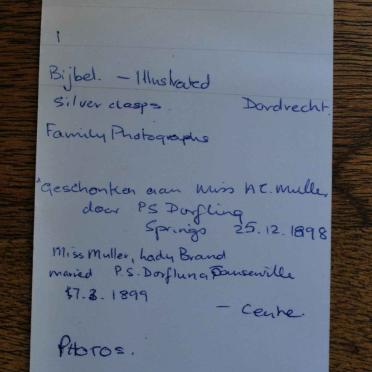 1
Bijbel. - Illustrated
Silver clasps. Dordrecht.
Family Photographs
"Geschonken aan Miss A C. Muller
door PS Dorfling
Springs 25.12.1898
Miss Muller, Lady Brand
maried P.S. Dorfling
1899
- Centre.
PHOTOS.